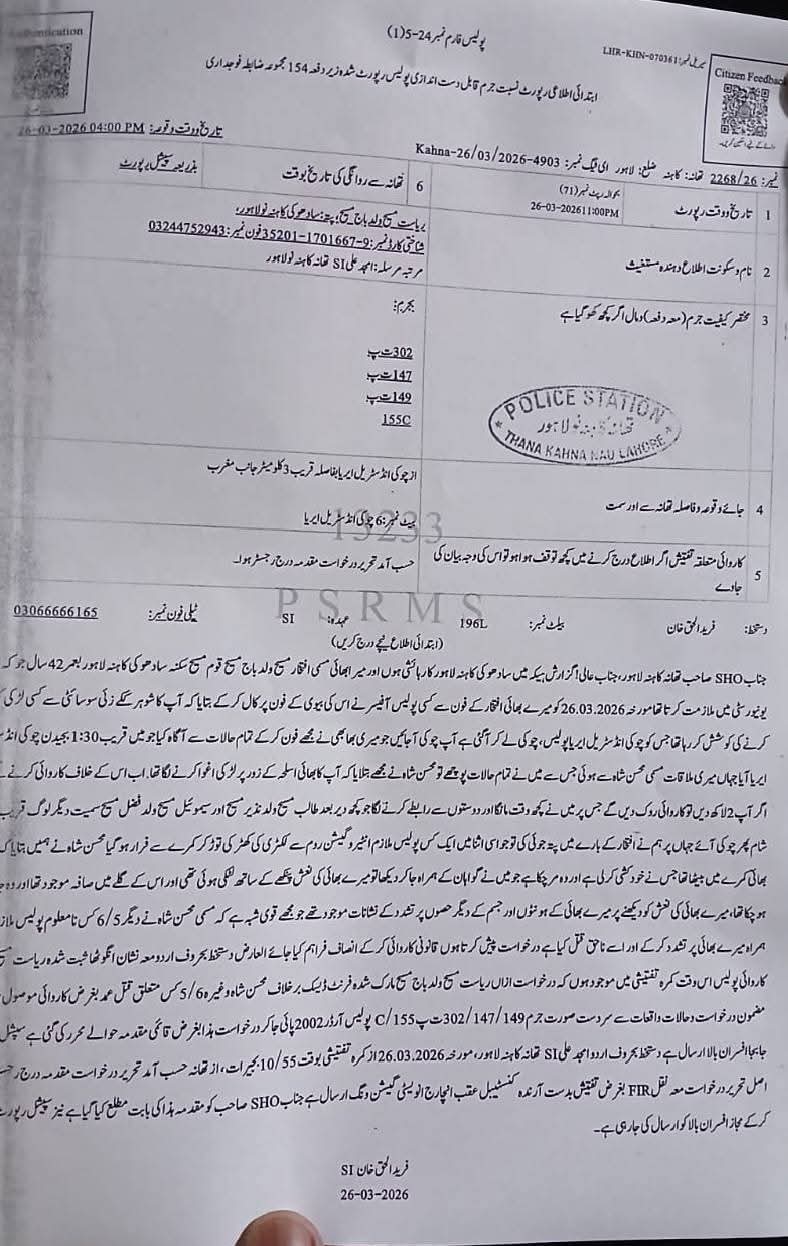 پولیس فارم نمبر 24-5(1)
سیریل نمبر: LHR-KHN-070361
Citizen Feedback
ابتدائی اطلاعی رپورٹ نسبت جرم قابل دست اندازی پولیس رپورٹ شدہ زیر دفعہ 154 مجموعہ ضابطہ فوجداری
نمبر: 2268/26 تھانہ: کاہنہ ضلع: لاہور ای ٹیگ نمبر: Kahna-26/03/2026-4903 تاریخ و وقت وقوعہ: 26-03-2026 04:00 PM
1 تاریخ و وقت رپورٹ بحوالہ رپٹ نمبر (71) 26-03-2026 11:00PM 6 تھانہ سے روانگی کی تاریخ بوقت بذریعہ سپیشل رپورٹ
2 نام و سکونت اطلاع دہندہ مستغیث
ریاست مسیح ولد باج مسیح، پتہ: سادھوکی کاہنہ نو لاہور،
شناختی کارڈ نمبر: 9-1701667-35201 فون نمبر: 03244752943
مرتبہ مرسلہ: امجد علی SI تھانہ کاہنہ نو لاہور
3 مختصر کیفیت جرم (معہ دفعہ) و مال اگر کچھ کھو گیا ہے
بجرم:
302 ت پ
147 ت پ
149 ت پ
155C
POLICE STATION
تھانہ کاہنہ نو لاہور
THANA KAHNA NAU LAHORE
4 جائے وقوعہ و فاصلہ تھانہ سے اور سمت
از چوکی انڈسٹریل ایریا بفاصلہ قریب 3 کلومیٹر جانب مغرب
بیٹ نمبر: 6 چوکی انڈسٹریل ایریا
15233
5 کاروائی متعلقہ تفتیش اگر اطلاع درج کرنے میں کچھ توقف ہوا ہو تو اس کی وجہ بیان کی جاوے
حسب آمد تحریر درخواست مقدمہ درج رجسٹر ہوا۔
PSRMS
دستخط: فرید الحق خان بیلٹ نمبر: 196L عہدہ: SI ٹیلی فون نمبر: 03066666165
(ابتدائی اطلاع نیچے درج کریں)
جناب SHO صاحب تھانہ کاہنہ لاہور، جناب عالی! گزارش ہیکہ میں سادھوکی کاہنہ لاہور کا رہائشی ہوں اور میرا بھائی مسمی افتخار مسیح ولد باج مسیح قوم مسیح سکنہ سادھوکی کاہنہ لاہور بعمر 42 سال جو کہ
یونیورسٹی میں ملازمت کرتا تھا مورخہ 26.03.2026 کو میرے بھائی افتخار کے فون سے کسی پولیس آفیسر نے اس کی بیوی کے فون پر کال کر کے بتایا کہ آپ کا شوہر سوسائٹی سے کسی لڑکی
کرنے کی کوشش کر رہا تھا جس کو چوکی انڈسٹریل ایریا پولیس، چوکی لے کر آ گئی ہے آپ چوکی آ جائیں جو میری بھابھی نے مجھے فون کر کے تمام حالات سے آگاہ کیا جو میں قریب 1:30 بجے دن چوکی
ایریا آیا جہاں میری ملاقات مسمی محسن شاہ سے ہوئی جس سے میں نے تمام حالات پوچھے تو محسن شاہ نے مجھے بتلایا کہ آپ کا بھائی اسلحہ کے زور پر لڑکی اغوا کرنے لگا تھا۔ اب اس کے خلاف کاروائی کرنے
اگر آپ 2 لاکھ دیں تو کاروائی روک دیں گے جس پر میں نے کچھ وقت مانگا اور دوستوں سے رابطے کرنے لگا جو کچھ دیر بعد طالب مسیح ولد نذیر مسیح اور سیموئیل مسیح ولد فضل مسیح سمیت دیگر لوگ قریب
شام پھر چوکی آئے جہاں پر ہم نے افتخار کے بارے میں پتہ جوئی کی تو جو اسی اثنا میں ایک کس پولیس ملازم انٹیروگیشن روم سے لکڑی کی کھڑکی توڑ کر کمرے سے فرار ہو گیا محسن شاہ نے ہمیں بتایا کہ
بھائی کمرے میں بیٹھا تھا جس نے خودکشی کر لی ہے اور وہ مر چکا ہے جو میں نے گواہان کے ہمراہ جا کر دیکھا تو میرے بھائی کی نعش پنکھے کے ساتھ لٹکی ہوئی تھی اور اس کے گلے میں صافہ موجود تھا اور وہ
ہو چکا تھا، میرے بھائی کی نعش کو دیکھنے پر میرے بھائی کے ہونٹوں اور جسم کے دیگر حصوں پر تشدد کے نشانات موجود تھے جو مجھے قوی شبہ ہے کہ مسمی محسن شاہ نے دیگر 5/6 کس نامعلوم پولیس
ہمراہ میرے بھائی پر تشدد کر کے اور اسے ناحق قتل کیا ہے درخواست پیش کرتا ہوں قانونی کاروائی کر کے انصاف فراہم کیا جائے العارض دستخط بحروف اردو معہ نشان انگوٹھا ثبت شدہ ریاست
کاروائی پولیس اس وقت کمرہ تفتیشی میں موجود ہوں کہ درخواست ازاں ریاست مسیح ولد باج مسیح مارک شدہ فرنٹ ڈیسک برخلاف محسن شاہ وغیرہ 5/6 کس متعلق قتل عمد بغرض کاروائی موصول
مضمون درخواست و حالات واقعات سے سردست صورت جرم 302/147/149 ت پ 155/C پولیس آرڈر 2002 پائی جا کر درخواست ہذا بغرض قائمی مقدمہ حوالے محرر کی گئی ہے سپیشل
جا بجا افسران بالا ارسال ہے دستخط بحروف اردو امجد علی SI تھانہ کاہنہ لاہور، مورخہ 26.03.2026 از کمرہ تفتیشی بوقت 10/55 بجے رات، از تھانہ حسب آمد تحریر درخواست مقدمہ درج
اصل تحریر درخواست معہ نقل FIR بغرض تفتیش بدست آرندہ کنسٹیبل عقب انچارج انویسٹی گیشن ونگ ارسال ہے جناب SHO صاحب کو مقدمہ ہذا کی بابت مطلع کیا گیا ہے نیز سپیشل
کر کے مجاز افسران بالا کو ارسال کی جا رہی ہے۔
فرید الحق خان SI
26-03-2026